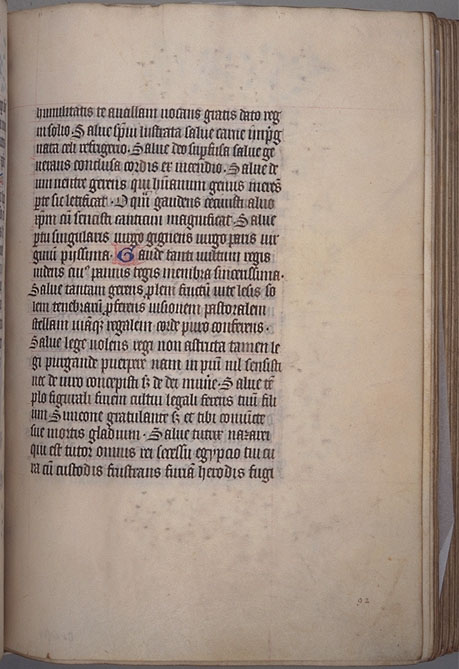 humilitatis te ancillam uocans gratis dato reg
ni solio. Salue spiu lustrata salue carne inpg
nata celi refrigerio. Salue deo
uerans conclusa cordis ex incendio. Salue de
um uentre gerens qui humanum genus
pte sic letificat. O gaudens cecinisti
xpm cu sensisti canticum magnificat. Salue
ptu singularis uirgo gignens uirgo paris uir
ginu piissima. Gaude tanti uultum regis
uidens cui pannis tegis menbra sincerissima.
Salue tantam gerens plem fructu uite
lem tenebraru pferens uisionem pastoralem
stellam regalem corde puro conferens.
Salue lege nolens regi non astricta tamen le
gi purgande puerpere nam in piu nil sensisti
nec de uiro concepisti sz de dei mune. Salue te
plo figurali finem cultui legali ferens tuum fili
um. Simeone gratulante sz et tibi
sue mortis gladium. Salue tutrix nazarei
qui est tutor omnis rei secessu egypcio tu cu
ra cu custodis frustrans furia herodis fugi
92